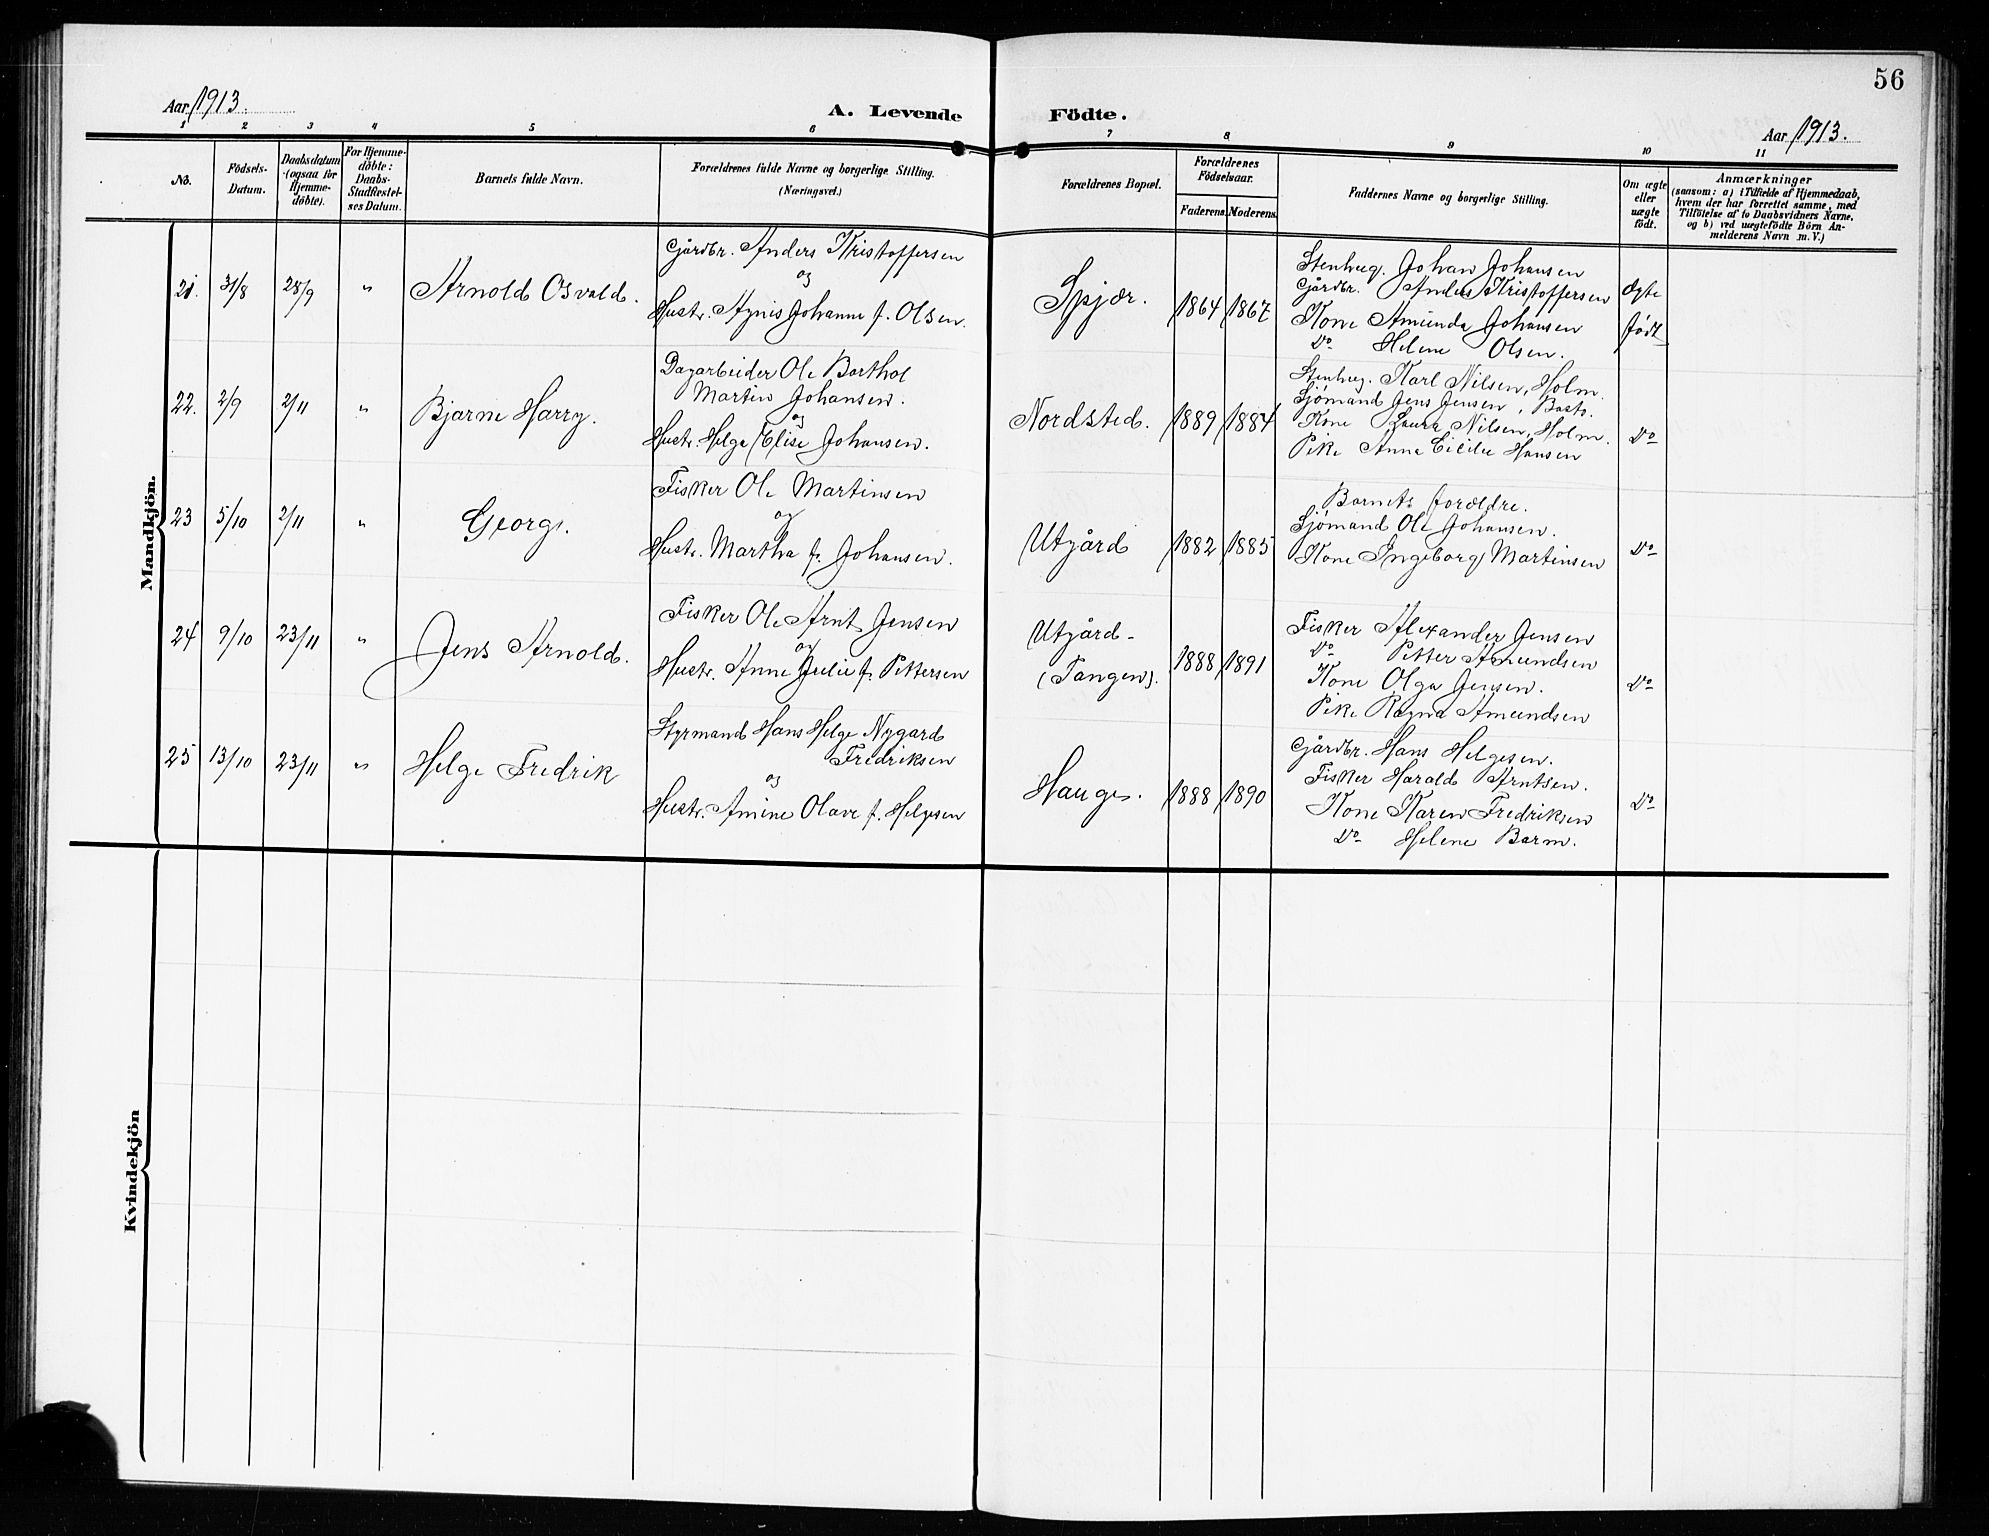 56
Aar 1913.
A. Levende Födte.
Aar 1913.
1 2 3 4 5 6 7 8 9 10 11
No.
Födsels-
Datum.
Daabsdatum
(ogsaa for
Hjemme-
döbte).
For Hjemme-
döbte:
Daabs-
Stadfæstel-
ses Datum.
Barnets fulde Navn.
Forældrenes fulde Navne og borgerlige Stilling.
(Næringsvei.)
Forældrenes Bopæl.
Forældrenes
Födselsaar.
Faderens.
Moderens.
Faddernes Navne og borgerlige Stilling.
Om ægte
eller
uægte
födt.
Anmærkninger
(saasom: a) i Tilfælde af Hjemmedaab,
hvem der har forrettet samme, med
Tilföielse af to Daabsvidners Navne,
og b) ved uægtefödte Börn An-
melderens Navn m. V.)
Mandkjön.
21. 31/8 28/9 " Arnold Osvald.
Gårdbr. Anders Kristoffersen
og
Hustr. Agnis Johanne f. Olsen.
Spjær. 1864 1867
Stenhug. Johan Johansen
Gårdbr. Anders Kristoffersen
Kone Amunda Johansen
Do Helene Olsen.
Ægte
født
22. 2/9 2/11 " Bjarne Harry.
Dagarbeider Ole Barthol
Martin Johansen.
og
Hustr. Helga Elise Johansen.
Nordsted. 1889 1884
Stenhug. Karl Nilsen, Holm.
Sjömand Jens Jensen,
Kone Laura Nilsen, Holm.
Pike Anna Cicilie Hansen
Do
23 5/10 2/11 " Georg.
Fisker Ole Martinsen
og
Hustr. Martha f. Johansen.
Utgård 1882 1885
Barnets forældre.
Sjömand Ole Johansen.
Kone Ingeborg Martinsen
Do
24 9/10 23/11 " Jens Arnold.
Fisker Ole Arnt Jensen
og
Hustr. Anne Julie f. Pettersen
Utgård-
(Tangen). 1888 1891
Fisker Alexander Jensen
Do Petter Amundsen
Kone Olga Jensen.
Pike Ragna Amundsen
Do
25 13/10 23/11 " Helge Fredrik
Styrmand Hans Helge Nygard
Fredriksen
og
Hustr. Amine Olave f. Helgesen
Hauge. 1888 1890
Gårdbr. Hans Helgesen.
Fisker Harald Arntsen.
Kone Karen Fredriksen
Do Helene Barm.
Do
Kvindekjön